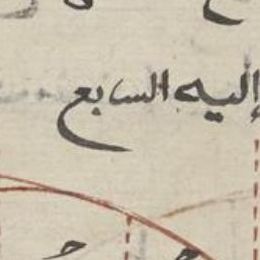 إليه السابع